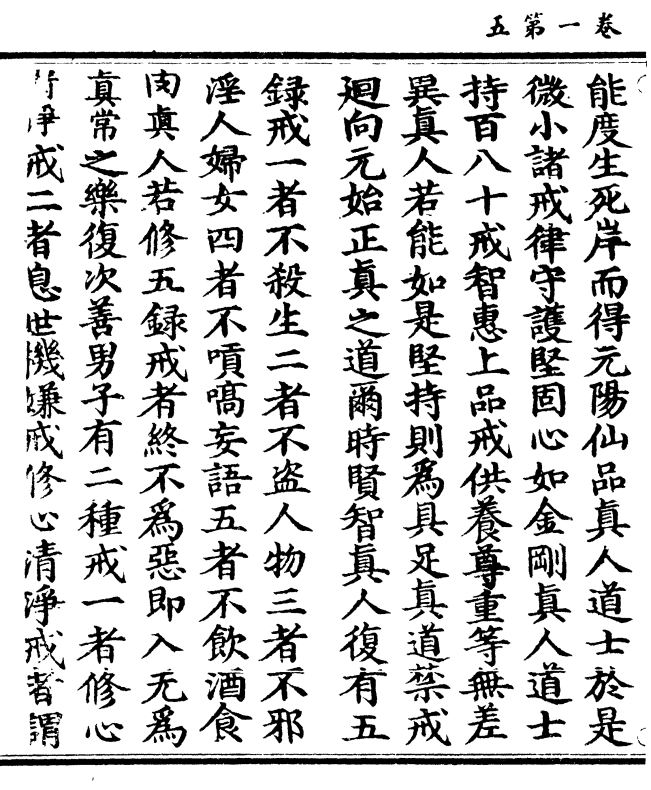 卷一第五
能度生死岸而得元陽仙品真人道士於是
微小諸戒律守護堅固心如金剛真人道士
持百八十戒智惠上品戒供養尊重等無差
異真人若能如是堅持則為具足真道禁戒
廻向元始正真之道爾時賢智真人復有五
録戒一者不殺生二者不盜人物三者不邪
淫人婦女四者不嗔喎妄語五者不飲酒食
肉真人若修五録戒者終不為惡即入无為
真常之樂復次善男子有二種戒一者修心
清淨戒二者息世機嫌戒修心清淨戒者謂